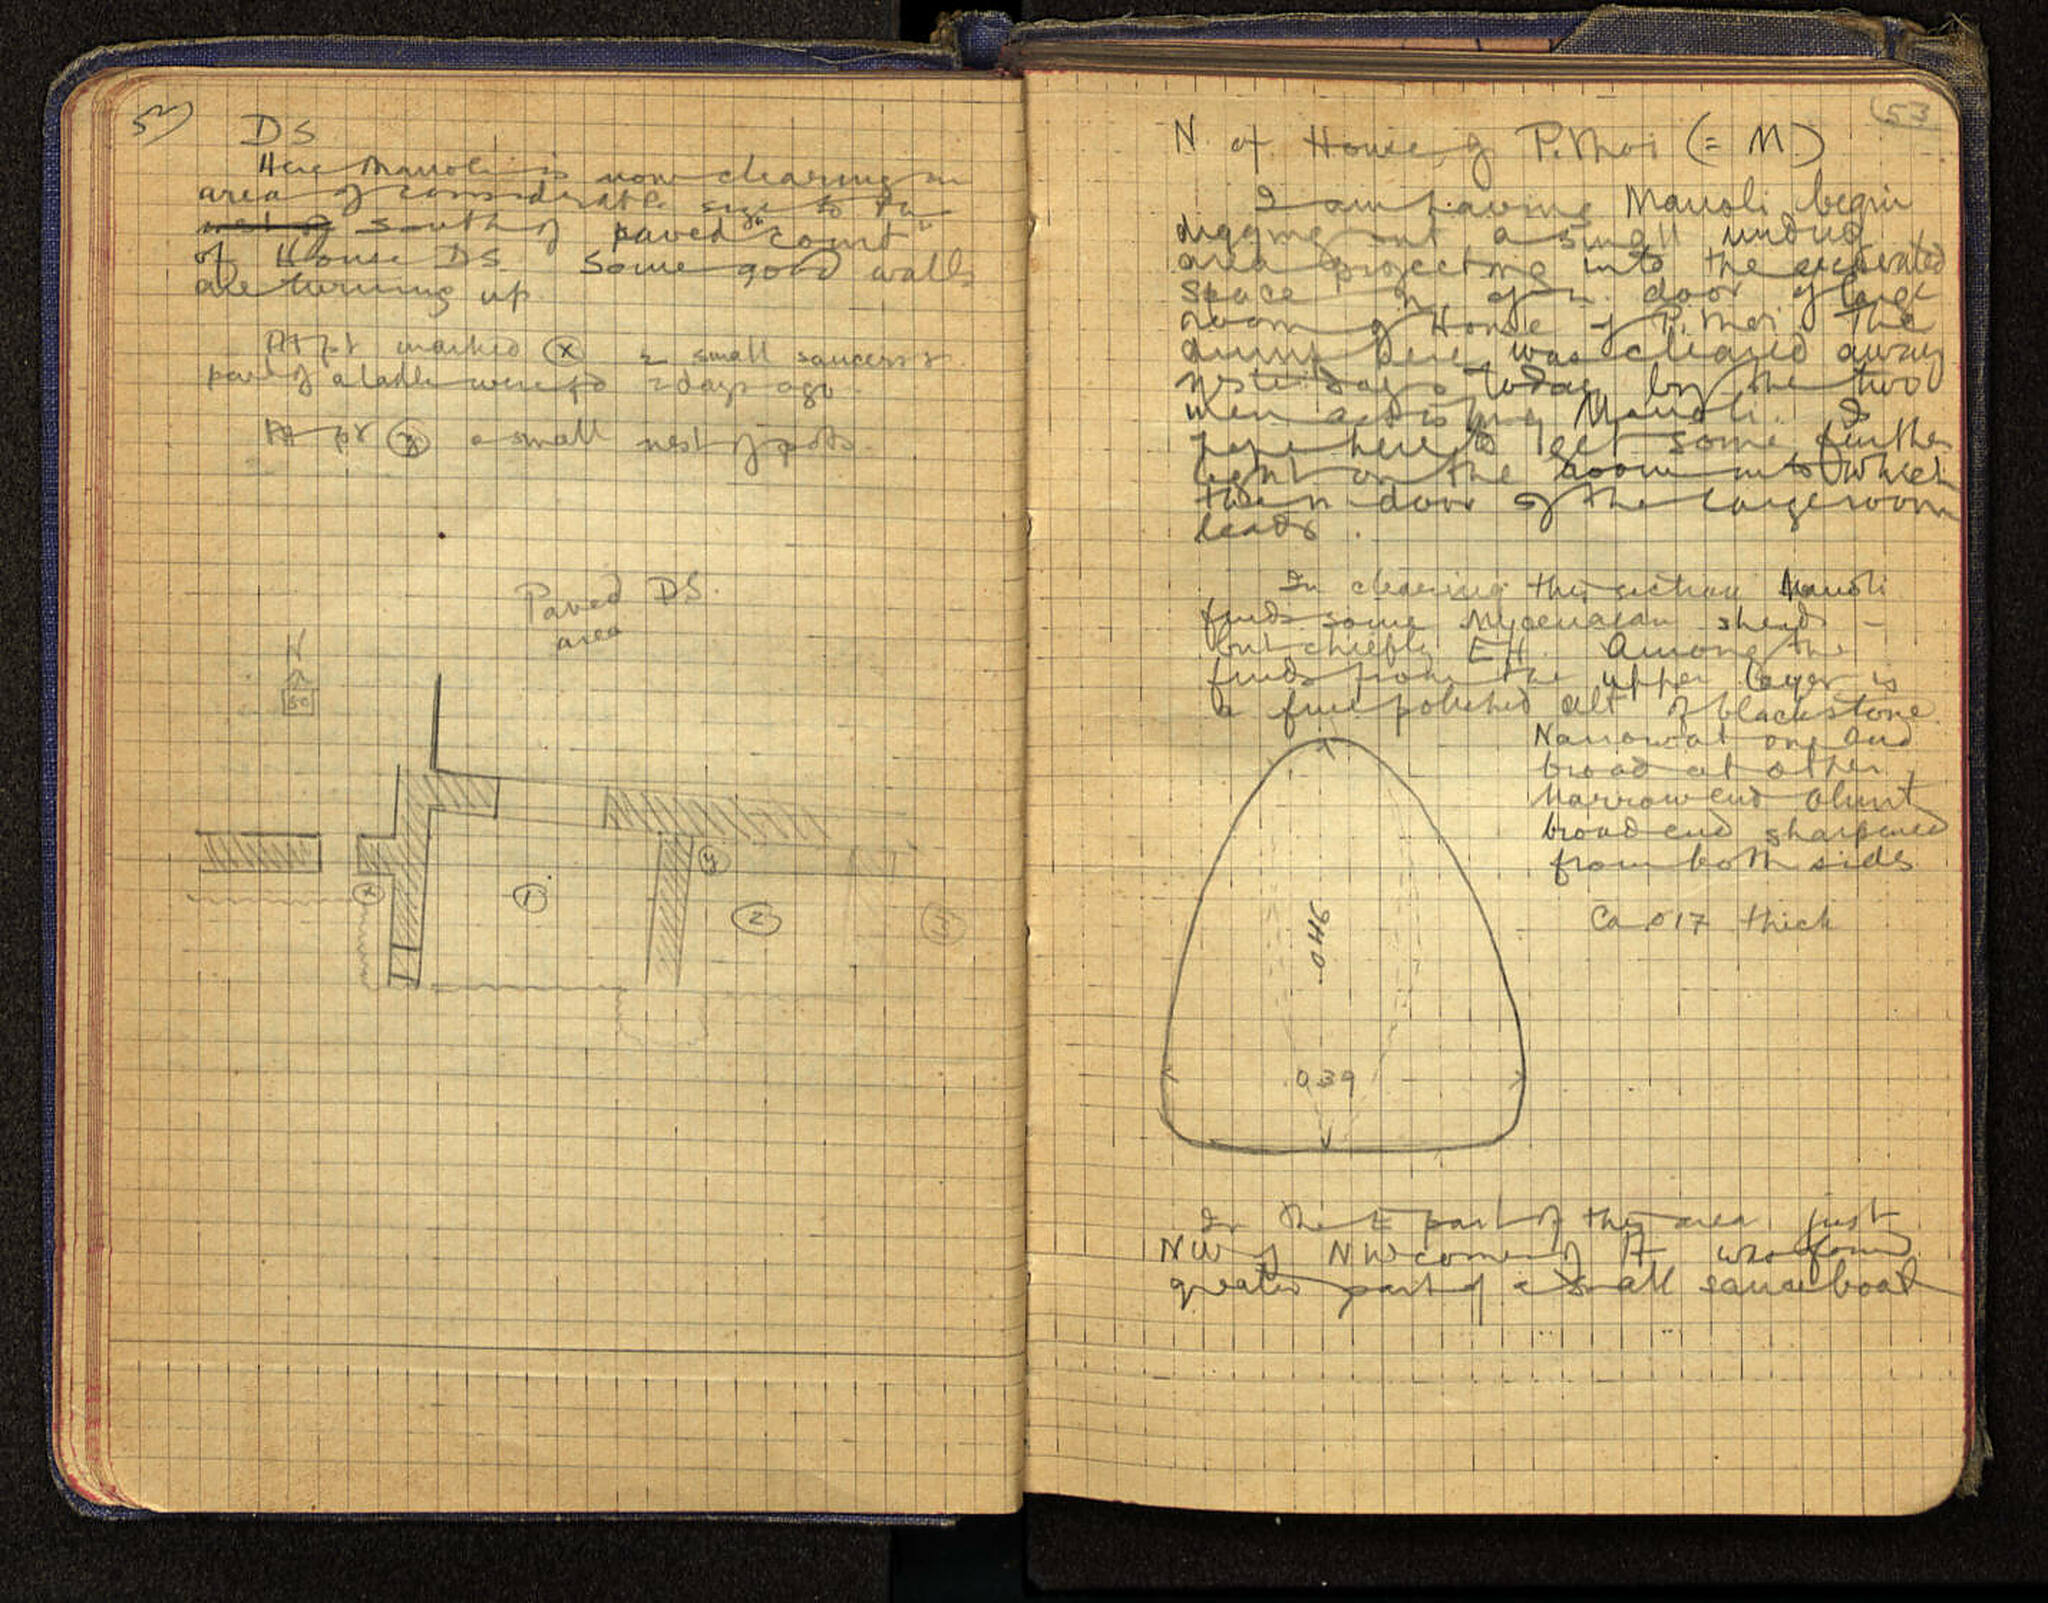 52
DS
Here Manoli is now clearing an
area of considerable size to the
west of south of "paved court"
of House DS. Some good walls
are turning up.
At pt marked (x) 2 small saucers &
part of a ladle were fd 2 days ago.
At pt (y) a small nest of pots.
Paved DS.
area
N
50
x
1
y
2
3
53
N. of House of Pithoi (= M)
I am having Manoli begin
digging out a small undug
area projecting into the excavated
space N. of n. door of large
room of House of Pithoi. The
dump here was cleared away
yesterday & today by the two
men assisting Manoli. I
hope here to get some further
light on the room into which
the n door of the large room
leads.
In clearing this section Manoli
finds some Mycenaean sherds –
but chiefly EH. Among the
finds from the upper layer is
a fine polished celt of black stone.
Narrow at one end
broad at other.
Narrow end blunt,
broad end sharpened
from both sides
Ca .017 thick
.046
.039
In the E part of this area just
NW of NW corner of A was found
greater part of a small sauceboat